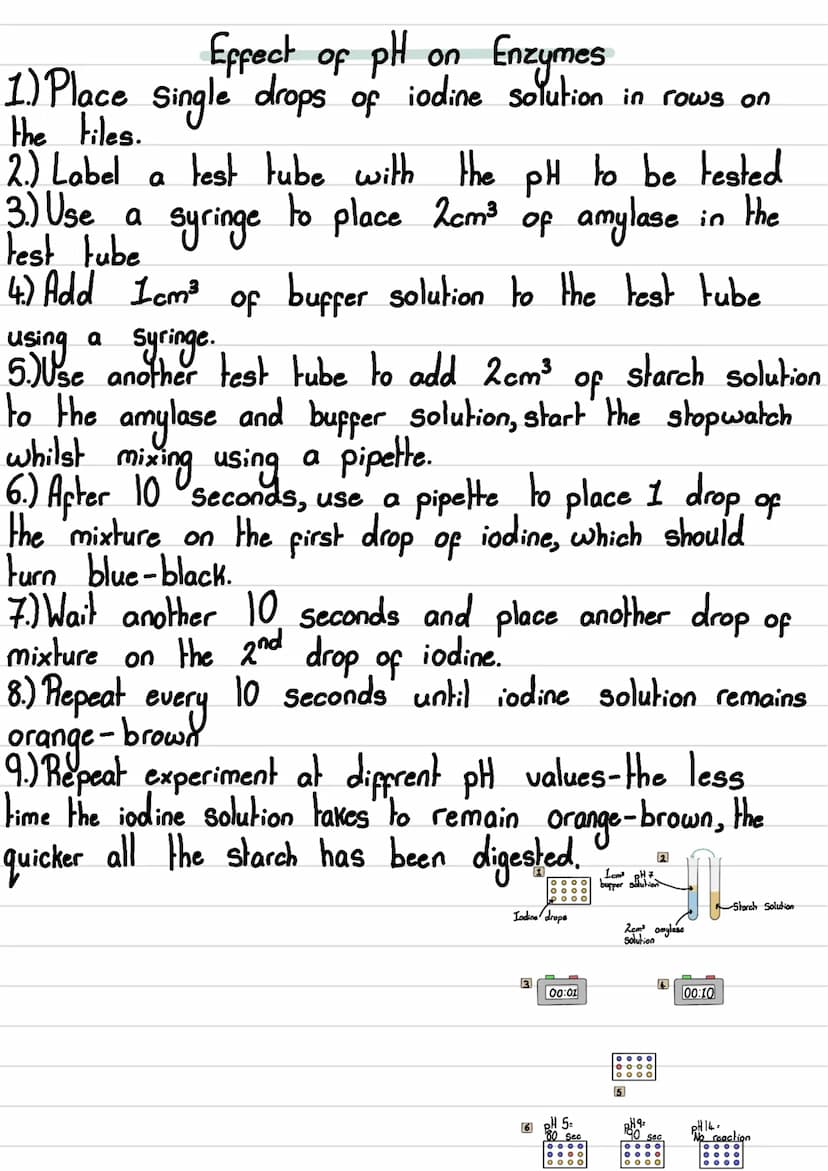 Effect of pH on Enzymes
1.) Place single drops of iodine solution in rows on
the tiles.
2.) Label a test tube with the pH to be tested
3.) Use a syringe to place 2cm³ of amylase in the
test tube
4.) Add 1cm³ of buffer solution to the test tube
using a syringe.
5.) Use another test tube to add 2cm³ of starch solution
to the amylase and buffer solution, start the stopwatch
whilst mixing using a pipette.
6.) After 10 seconds, use a pipette to place 1 drop of
the mixture on the first drop of iodine, which should
turn blue-black.
7.) Wait another 10 seconds and place another drop of
mixture on the 2nd drop of iodine.
8.) Repeat every 10 seconds until iodine solution remains
orange-brown
9.) Repeat experiment at diffrent pH values-the less
time the iodine solution takes to remain orange-brown, the
quicker all the starch has been digested.
1
Iodine drops
2
1cm³ pH 7
buffer solution
Starch Solution
2cm³ amylase
solution
3
00:01
4
00:10
5
6
pH 5:
80 sec
pH 9:
90 sec
pH 14:
No reaction